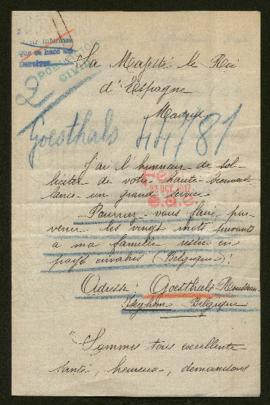 Sa Majesté le Roi
d'Espagne
Madrid
Goethals 44781
J'ai l'honneur de sol-
liciter de votre haute bienveil-
lance un grand service
Pourriez-vous faire par-
venir les vingt mots suivants
à ma famille restée en
pays envahis (Belgique):
Adresse: Goethals
Belgique
"Sommes tous excellente
santé, heureux, demandons